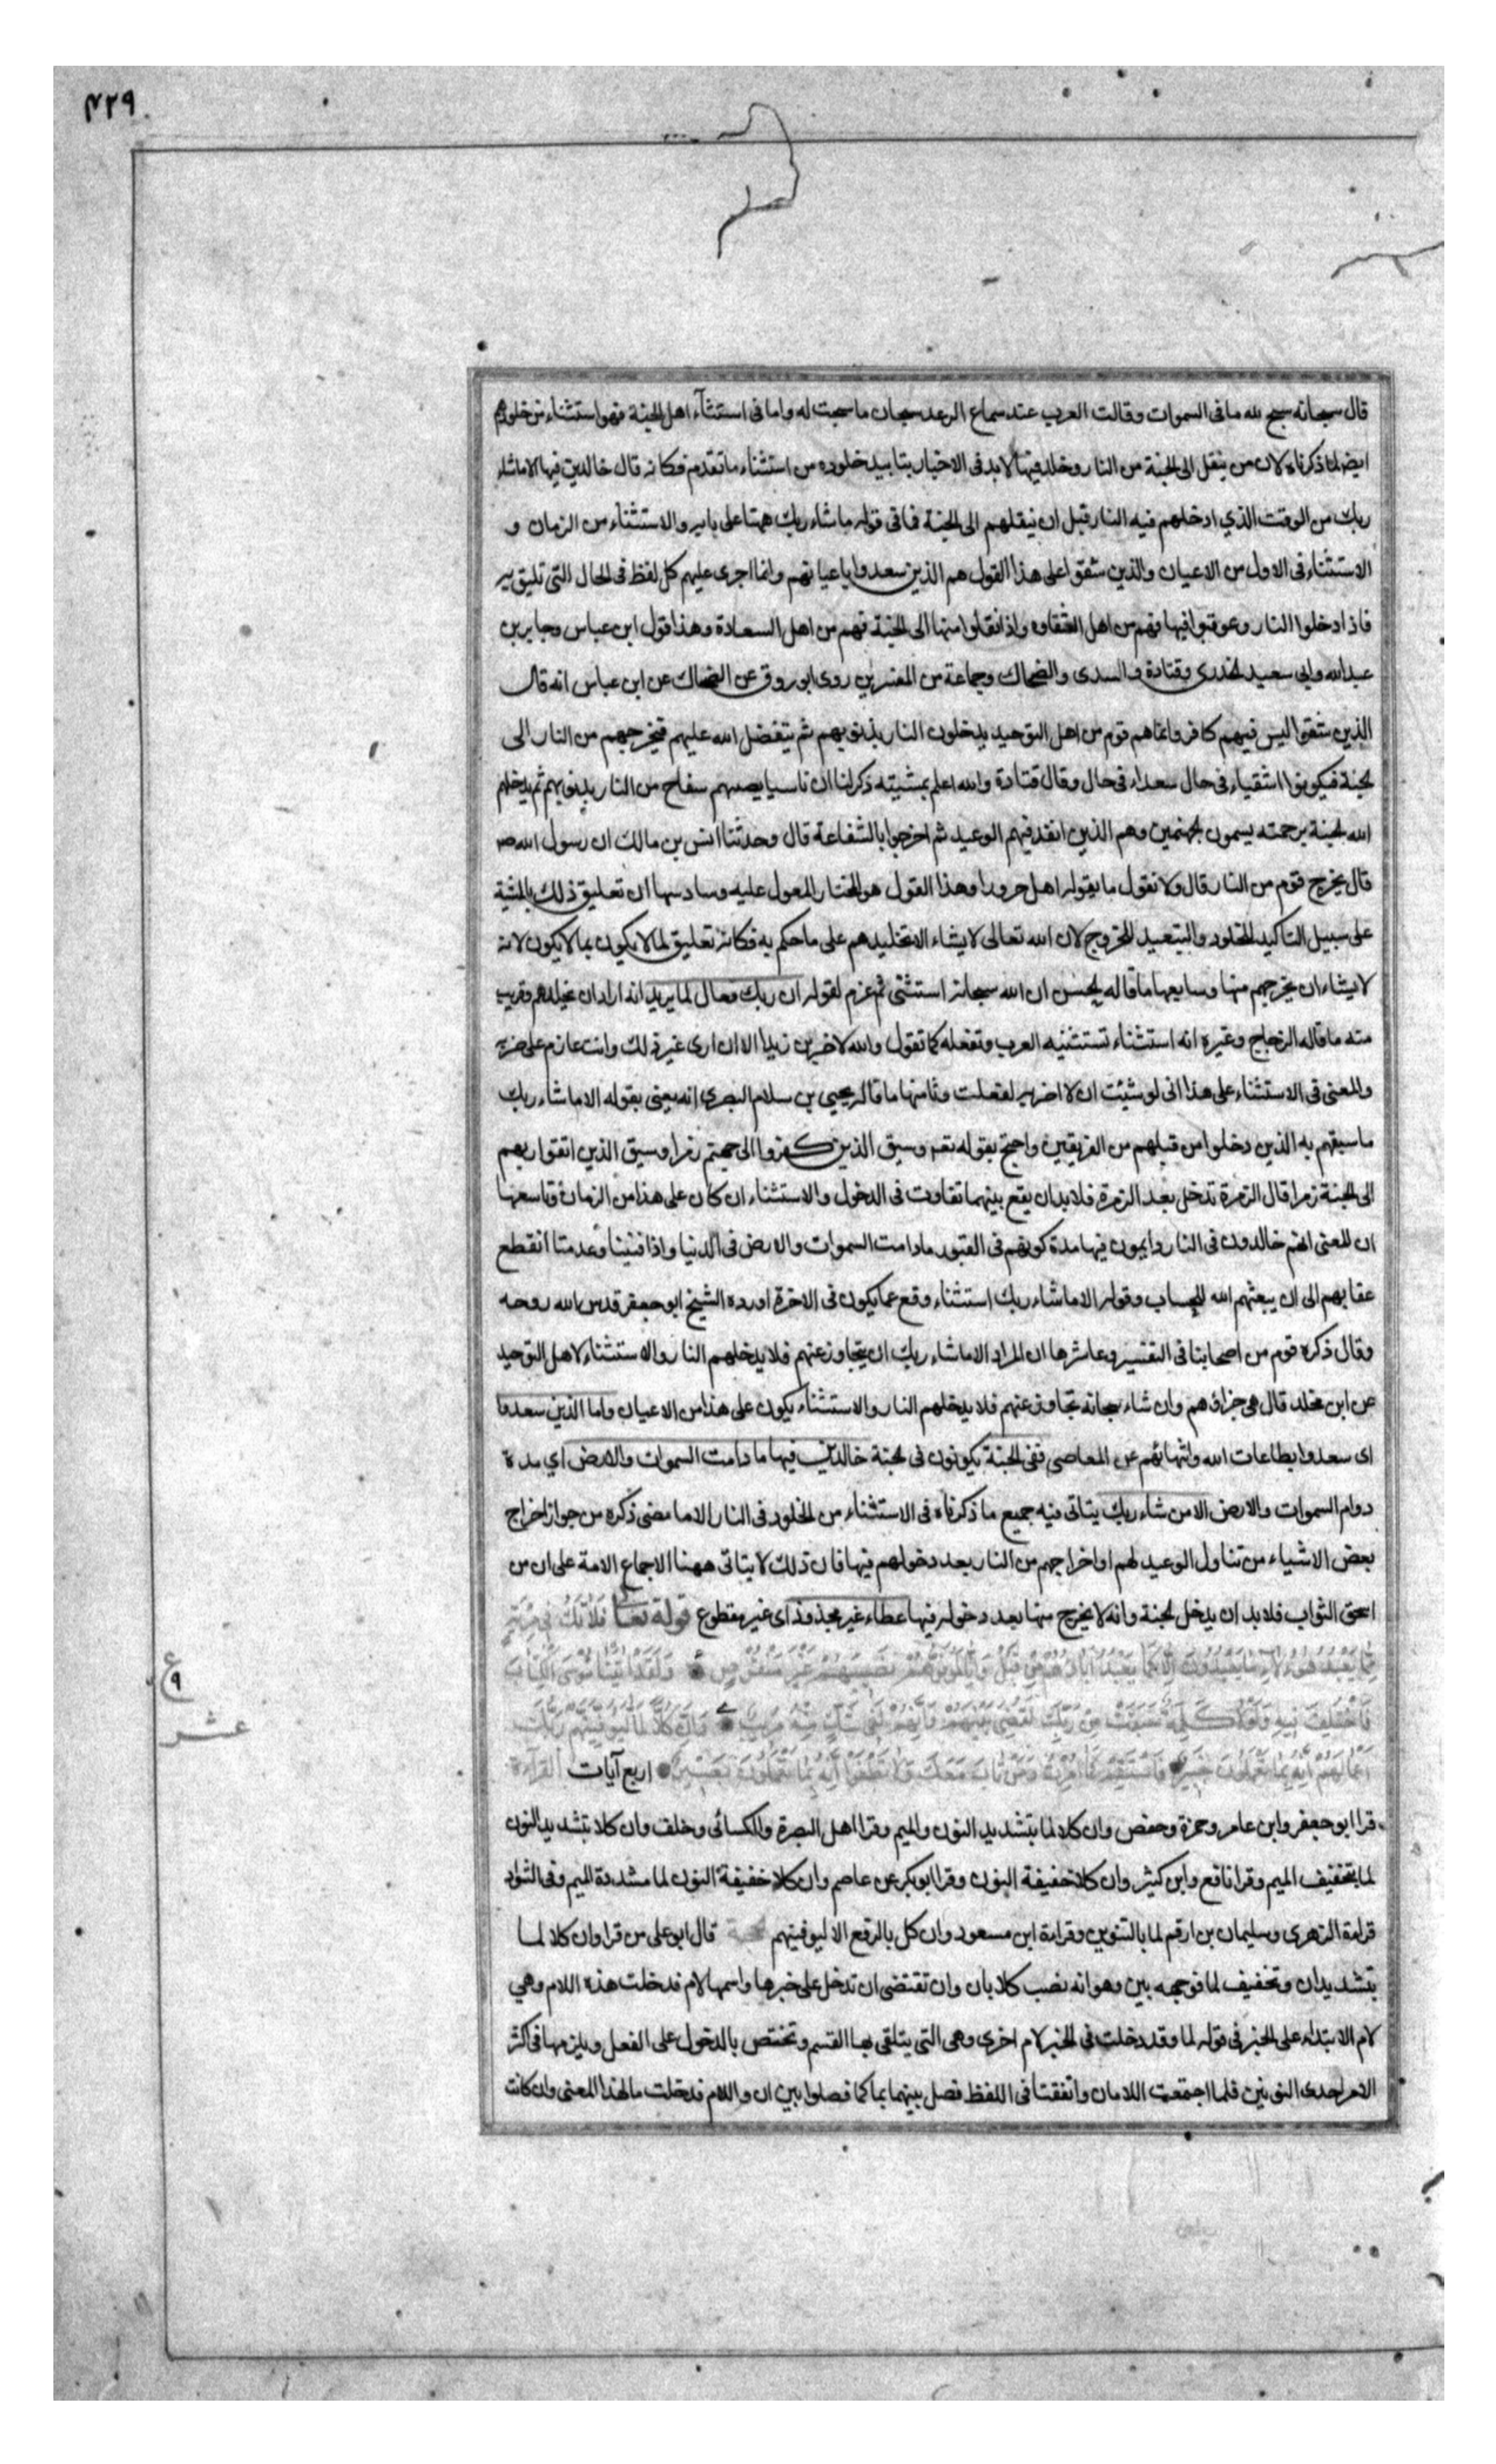 ٤٢٩
قال سبحانه سبح لله ما فى السموات وقالت العرب عند سماع الرعد سبحان ما سبحت له واما فى استثنآء اهل الجنة فهو استثناء من خلودهم
ايضا لما ذكرناه لان من ينقل الى الجنة من النار وخلد فيها لابد فى الاخبار بتابيد خلوده من استثناء ما تقدم فكانه قال خالدين فيها الا ما شاء
ربك من الوقت الذي ادخلهم فيه النار قبل ان ينقلهم الى الجنة فما فى قوله ما شاء ربك ههنا على بابه والاستثنآء من الزمان و
الاستثناء فى الاول من الاعيان والذين شقوا على هذا القول هم الذين سعدوا باعيانهم وانما اجرى عليهم كل لفظ فى الحال التى تليق به
فاذا دخلوا النار وعوقبوا فيها فهم من اهل الشقاوه واذا نقلوا منها الى الجنة فهم من اهل السعادة وهذا قول ابن عباس وجابر بن
عبد الله وابي سعيد الخدرى وقتادة والسدى والضحاك وجماعة من المفسرين روى ابو روق عن الضحاك عن ابن عباس انه قال
الذين شقوا ليس فيهم كافر وانما هم قوم من اهل التوحيد يدخلون النار بذنوبهم ثم يتفضل الله عليهم فيخرجهم من النار الى
الجنة فيكونوا اشقياء فى حال سعداء فى حال وقال قتادة والله اعلم بمشيته ذكر لنا ان ناسا يصيبهم سفاح من النار بذنوبهم ثم يدخلهم
الله الجنة برحمته يسمون الجهنميين وهم الذين انفذ فيهم الوعيد ثم اخرجوا بالشفاعة قال وحدثنا انس بن مالك ان رسول الله ص
قال يخرج قوم من النار قال ولا نقول ما يقوله اهل حرورا وهذا القول هو المختار المعول عليه وسادسها ان تعليق ذلك بالمشية
على سبيل التاكيد للخلود والتبعيد للخروج لان الله تعالى لا يشاء الا تخليدهم على ما حكم به فكانه تعليق لما لا يكون بما لا يكون لانه
لا يشاء ان يخرجهم منها وسابعها ما قاله الحسن ان الله سبحانه استثنى ثم عزم لقوله ان ربك فعال لما يريد انه اراد ان يخلدهم وقريب
منه ما قاله الزجاج وغيره انه استثناء تستثنيه العرب وتفعله كما تقول والله لاضربن زيدا الا ان ارى غير ذلك وانت عازم على ضربه
والمعنى فى الاستثناء على هذا انى لو شئت ان لا اضربه لفعلت وثامنها ما قاله يحيي بن سلام البصري انه يعنى بقوله الا ما شاء ربك
ما سبقهم به الذين دخلوا من قبلهم من الفريقين واحتج بقوله تعـ وسيق الذين كفروا الى جهنم زمرا وسيق الذين اتقوا ربهم
الى الجنة زمرا قال الزمرة تدخل بعد الزمرة فلابد ان يقع بينهما تفاوت فى الدخول والاستثناء ان كان على هذا من الزمان وتاسعها
ان المعنى انهم خالدون فى النار دايمون فيها مدة كونهم فى القبور ما دامت السموات والارض فى الدنيا واذا فنيتا وعدمتا انقطع
عقابهم الى ان يبعثهم الله للحساب وقوله الا ما شاء ربك استثناء وقع عما يكون فى الاخرة اورده الشيخ ابو جعفر قدس الله روحه
وقال ذكره قوم من اصحابنا فى التفسير وعاشرها ان المراد الا ما شاء ربك ان يتجاوز عنهم فلا يدخلهم النار والاستثناء لاهل التوحيد
ابن مخلد قال هى جزاؤهم وان شاء سبحانه تجاوز عنهم فلا يدخلهم النار والاستثناء يكون على هذا من الاعيان واما الذين سعدوا
اى سعدوا بطاعات الله وانتهائهم عن المعاصى ففى الجنة يكونون فى الجنة خالدين فيها ما دامت السموات والارض اي مدة
دوام السموات والارض الا من شاء ربك يتاتى فيه جميع ما ذكرناه فى الاستثناء من الخلود فى النار الا ما مضى ذكره من جواز اخراج
بعض الاشياء من تناول الوعيد لهم او اخراجهم من النار بعد دخولهم فيها فان ذلك لا يتاتى ههنا الاجماع الامة على ان من
استحق الثواب فلابد ان يدخل الجنة وانه لا يخرج منها بعد دخوله فيها عطاء غير مجذوذ اى غير مقطوع قوله تعا فَلا تَكُ فِى مِرْيَةٍ
مِمَّا يَعْبُدُ هٰؤُلاءِ مَا يَعْبُدُونَ اِلّا كَمَا يَعْبُدُ آبَاؤُهُمْ مِنْ قَبْلُ وَاِنَّا لَمُوَفُّوهُمْ نَصِيبَهُمْ غَيْرَ مَنْقُوصٍ وَلَقَدْ آتَيْنَا مُوسَى الْكِتَابَ
فَاخْتُلِفَ فِيهِ وَلَوْلا كَلِمَةٌ سَبَقَتْ مِنْ رَبِّكَ لَقُضِىَ بَيْنَهُمْ وَاِنَّهُمْ لَفِى شَكٍّ مِنْهُ مُرِيبٍ وَاِنَّ كُلًّا لَمَّا لَيُوَفِّيَنَّهُمْ رَبُّكَ
اَعْمَالَهُمْ اِنَّهُ بِمَا يَعْمَلُونَ خَبِيرٌ فَاسْتَقِمْ كَمَا اُمِرْتَ وَمَنْ تَابَ مَعَكَ وَلا تَطْغَوْا اِنَّهُ بِمَا تَعْمَلُونَ بَصِيرٌ اربع آيات القرآءة
ع
٩
عشر
قرا ابو جعفر وابن عامر وحمزة وحفص وان كلا لما بتشديد النون والميم وقرا اهل البصرة والكسائى وخلف وان كلا بتشديد النون
لما بتخفيف الميم وقرا نافع وابن كثير وان كلا خفيفة النون وقرا ابو بكر عن عاصم وان كلا خفيفة النون لما مشددة الميم وفى الشواذ
قراءة الزهرى وسليمان بن ارقم لما بالتنوين وقراءة ابن مسعود وان كل بالرفع الا ليوفينهم قال ابو على من قرا وان كلا لما
بتشديد ان وتخفيف لما فوجهه بين وهو انه نصب كلا بان وان تقتضى ان تدخل على خبرها واسمها لام فدخلت هذه اللام وهي
لام الابتداء على الخبر فى قوله لما وقد دخلت فى الخبر لام اخرى وهى التى يتلقى بها القسم وتختص بالدخول على الفعل ويلزمها فى اكثر
الامر احدى النونين فلما اجتمعت اللامان واتفقتا فى اللفظ فصل بينهما بما كما فصلوا بين ان واللام فدخلت ما لهذا المعنى وان كانت